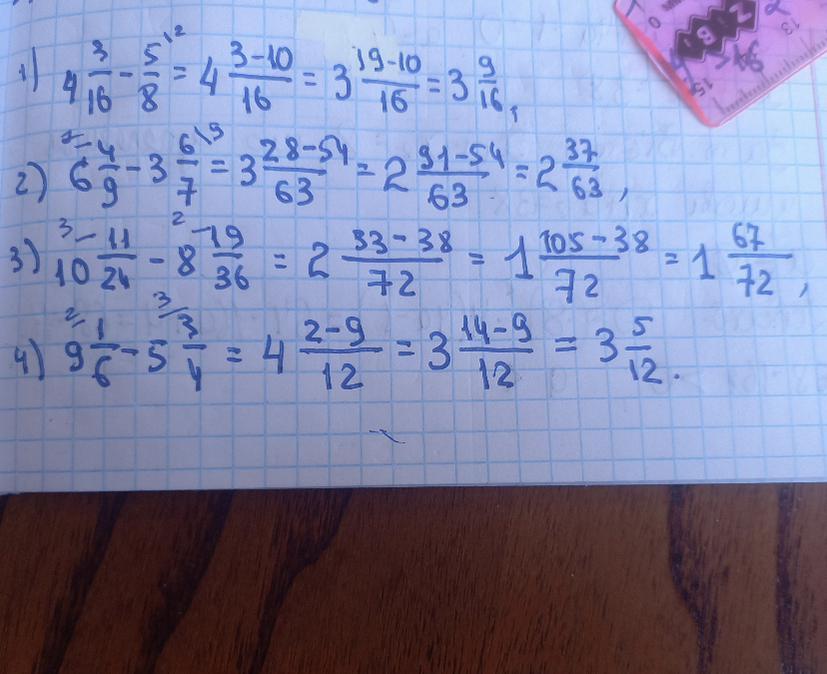 1) 4 3/16 - 5/8 \2 = 4 (3-10)/16 = 3 (19-10)/16 = 3 9/16,
2) 6 7/ 4/9 - 3 6/7 \9 = 3 (28-54)/63 = 2 (91-54)/63 = 2 37/63,
3) 10 3/ 11/24 - 8 2/ 19/36 = 2 (33-38)/72 = 1 (105-38)/72 = 1 67/72,
4) 9 2/ 1/6 - 5 3/ 3/4 = 4 (2-9)/12 = 3 (14-9)/12 = 3 5/12.